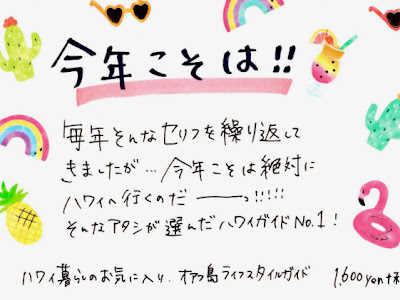 今年こそは!!
毎年そんなセリフを繰り返して
きましたが…今年こそは絶対に
ハワイへ行くのだ───っ!!!!!
そんなアタシが選んだハワイガイドNo.1!
ハワイ暮らしのお気に入り. オアフ島ライフスタイルガイド 1,600yen+税